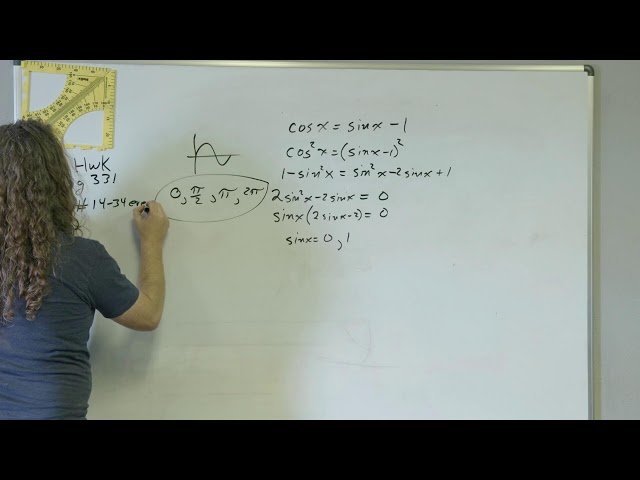 HwK
g 331
# 14-34 eve
0, π/2, π, 2π
cosx = sinx - 1
cos²x = (sinx-1)²
1 - sin²x = sin²x - 2sinx + 1
2sin²x - 2sinx = 0
sinx(2sinx-2) = 0
sinx = 0, 1